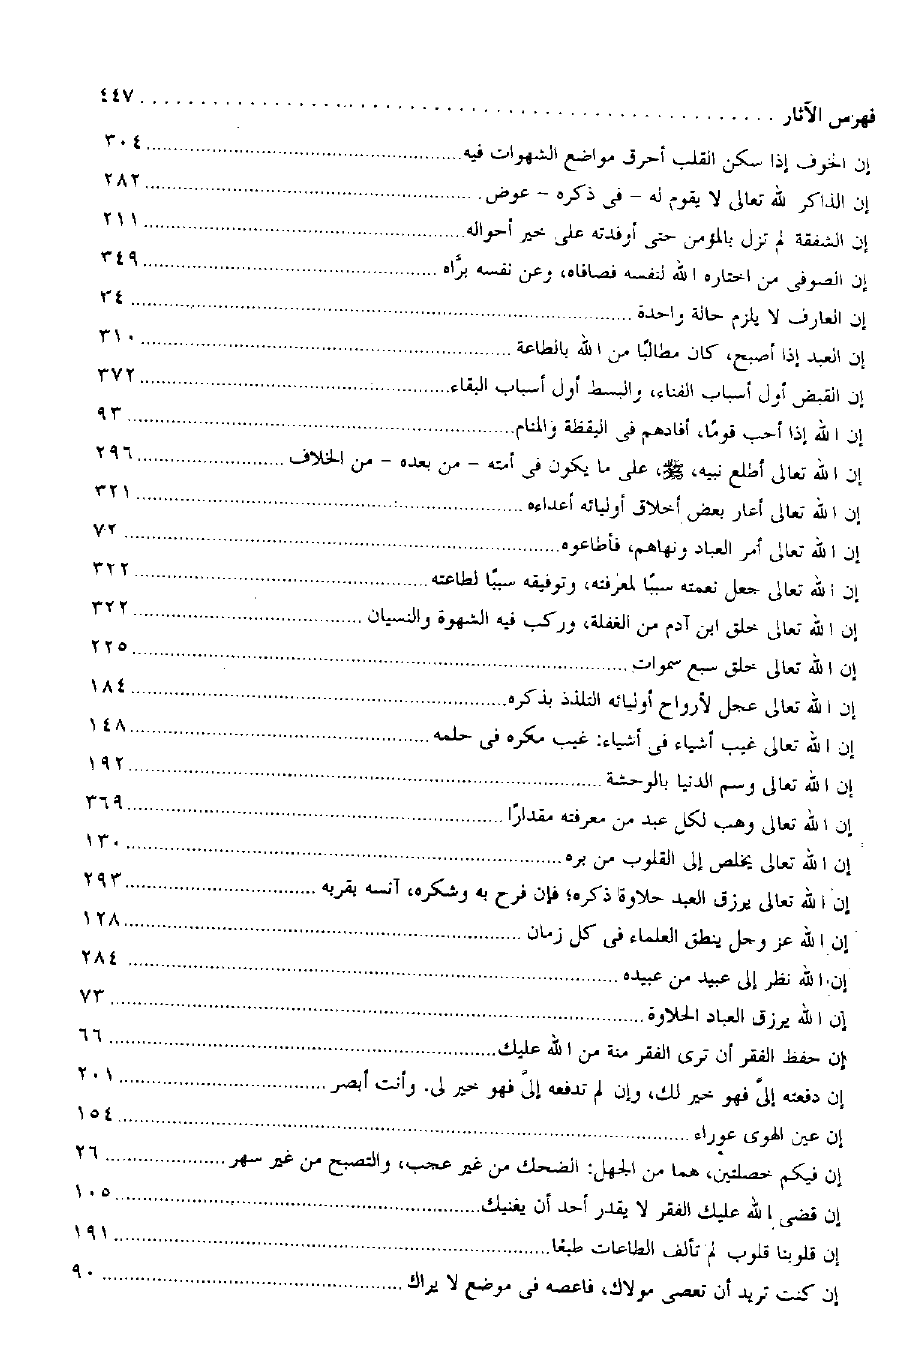 فهرس الآثار ........ ٤٤٧
إن الخوف إذا سكن القلب أحرق مواضع الشهوات فيه ........ ٣٠٤
إن الذاكر لله تعالى لا يقوم له – فى ذكره – عوض ........ ٢٨٢
إن الشفقة لم تزل بالمؤمن حتى أوفدته على خير أحواله ........ ٢١١
إن الصوفى من اختاره الله لنفسه فصافاه، وعن نفسه برَّاه ........ ٣٤٩
إن العارف لا يلزم حالة واحدة ........ ٣٤
إن العبد إذا أصبح، كان مطالبًا من الله بالطاعة ........ ٣١٠
إن القبض أول أسباب الفناء، والبسط أول أسباب البقاء ........ ٣٧٢
إن الله إذا أحب قومًا، أفادهم فى اليقظة والمنام ........ ٩٣
إن الله تعالى أطلع نبيه، ﷺ، على ما يكون فى أمته – من بعده – من الخلاف ........ ٢٩٦
إن الله تعالى أعار بعض أخلاق أوليائه أعداءه ........ ٣٢١
إن الله تعالى أمر العباد ونهاهم، فأطاعوه ........ ٧٢
إن الله تعالى جعل نعمته سببًا لمعرفته، وتوفيقه سببًا لطاعته ........ ٣٢٢
إن الله تعالى خلق ابن آدم من الغفلة، وركب فيه الشهوة والنسيان ........ ٣٢٢
إن الله تعالى خلق سبع سموات ........ ٢٢٥
إن الله تعالى عجل لأرواح أوليائه التلذذ بذكره ........ ١٨٤
إن الله تعالى غيب أشياء فى أشياء: غيب مكره فى حلمه ........ ١٤٨
إن الله تعالى وسم الدنيا بالوحشة ........ ١٩٢
إن الله تعالى وهب لكل عبد من معرفته مقدارًا ........ ٣٦٩
إن الله تعالى يخلص إلى القلوب من بره ........ ١٣٠
إن الله تعالى يرزق العبد حلاوة ذكره؛ فإن فرح به وشكره، آنسه بقربه ........ ٢٩٣
إن الله عز وجل ينطق العلماء فى كل زمان ........ ١٢٨
إن الله نظر إلى عبيد من عبيده ........ ٢٨٤
إن الله يرزق العباد الحلاوة ........ ٧٣
إن حفظ الفقر أن ترى الفقر منة من الله عليك ........ ٦٦
إن دفعته إلىَّ فهو خير لك، وإن لم تدفعه إلىَّ فهو خير لى. وأنت أبصر ........ ٢٠١
إن عين الهوى عوراء ........ ١٥٤
إن فيكم خصلتين، هما من الجهل: الضحك من غير عجب، والتصبح من غير سهر ........ ٢٦
إن قضى الله عليك الفقر لا يقدر أحد أن يغنيك ........ ١٠٥
إن قلوبنا قلوب لم تألف الطاعات طبعًا ........ ١٩١
إن كنت تريد أن تعصى مولاك، فاعصه فى موضع لا يراك ........ ٩٠